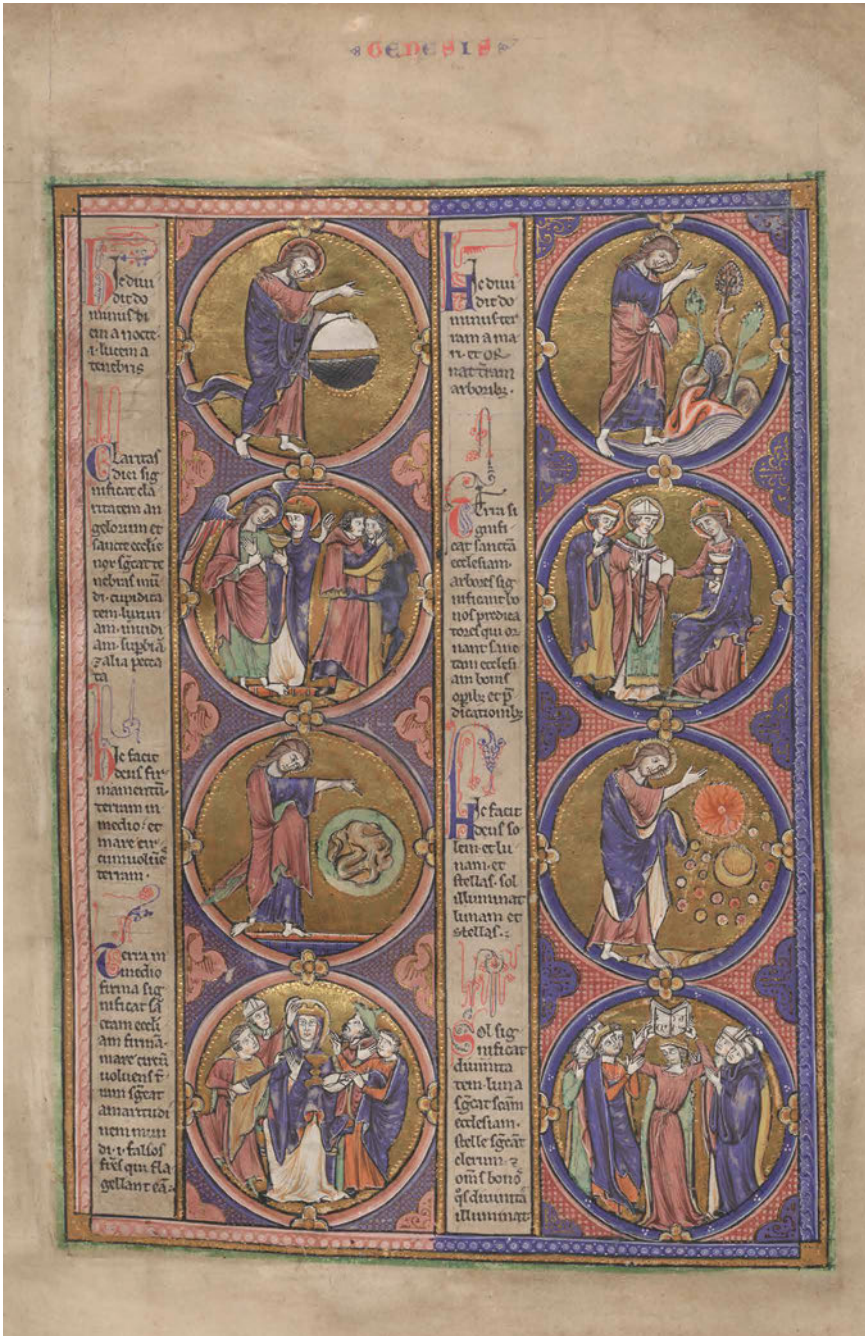 GENESIS
Hic divi
dit do
minus di
em a nocte
.i. lucem a
tenebris
Claritas
diei sig
nificat cla
ritatem an
gelorum et
sancte ecclie
nox sgcat te
nebras mū
di. cupidita
tem. luxuri
am. invidi
am. supbiā
⁊ alia pecca
ta
Hic facit
deus fir
mamentū.
terram in
medio. et
mare cir
cumvolvēs
terram.
Terra in
medio
firma sig
nificat sā
ctam eccli
am firmā.
mare circū
volvens t̄
ram sgcat
amaritudi
nem mun
di .i. falsos
fr̄es qui fla
gellant eā.
Hic divi
dit do
minus ter
ram a ma
ri. et or
nat t̄ram
arborib;.
Terra si
gnifi
cat sanctā
ecclesiam.
arbores sig
nificant bo
nos predica
tores qui or
nant sanc
tam ecclesi
am bonis
opib; et p̄
dicationib;
Hic facit
deus so
lem. et lu
nam. et
stellas. sol
illuminat
lunam et
stellas.
Sol sig
nificat
divinita
tem. luna
sgcat scām
ecclesiam.
stelle sgcāt
clerum. ⁊
om̄s bonos
qs divinita
illuminat